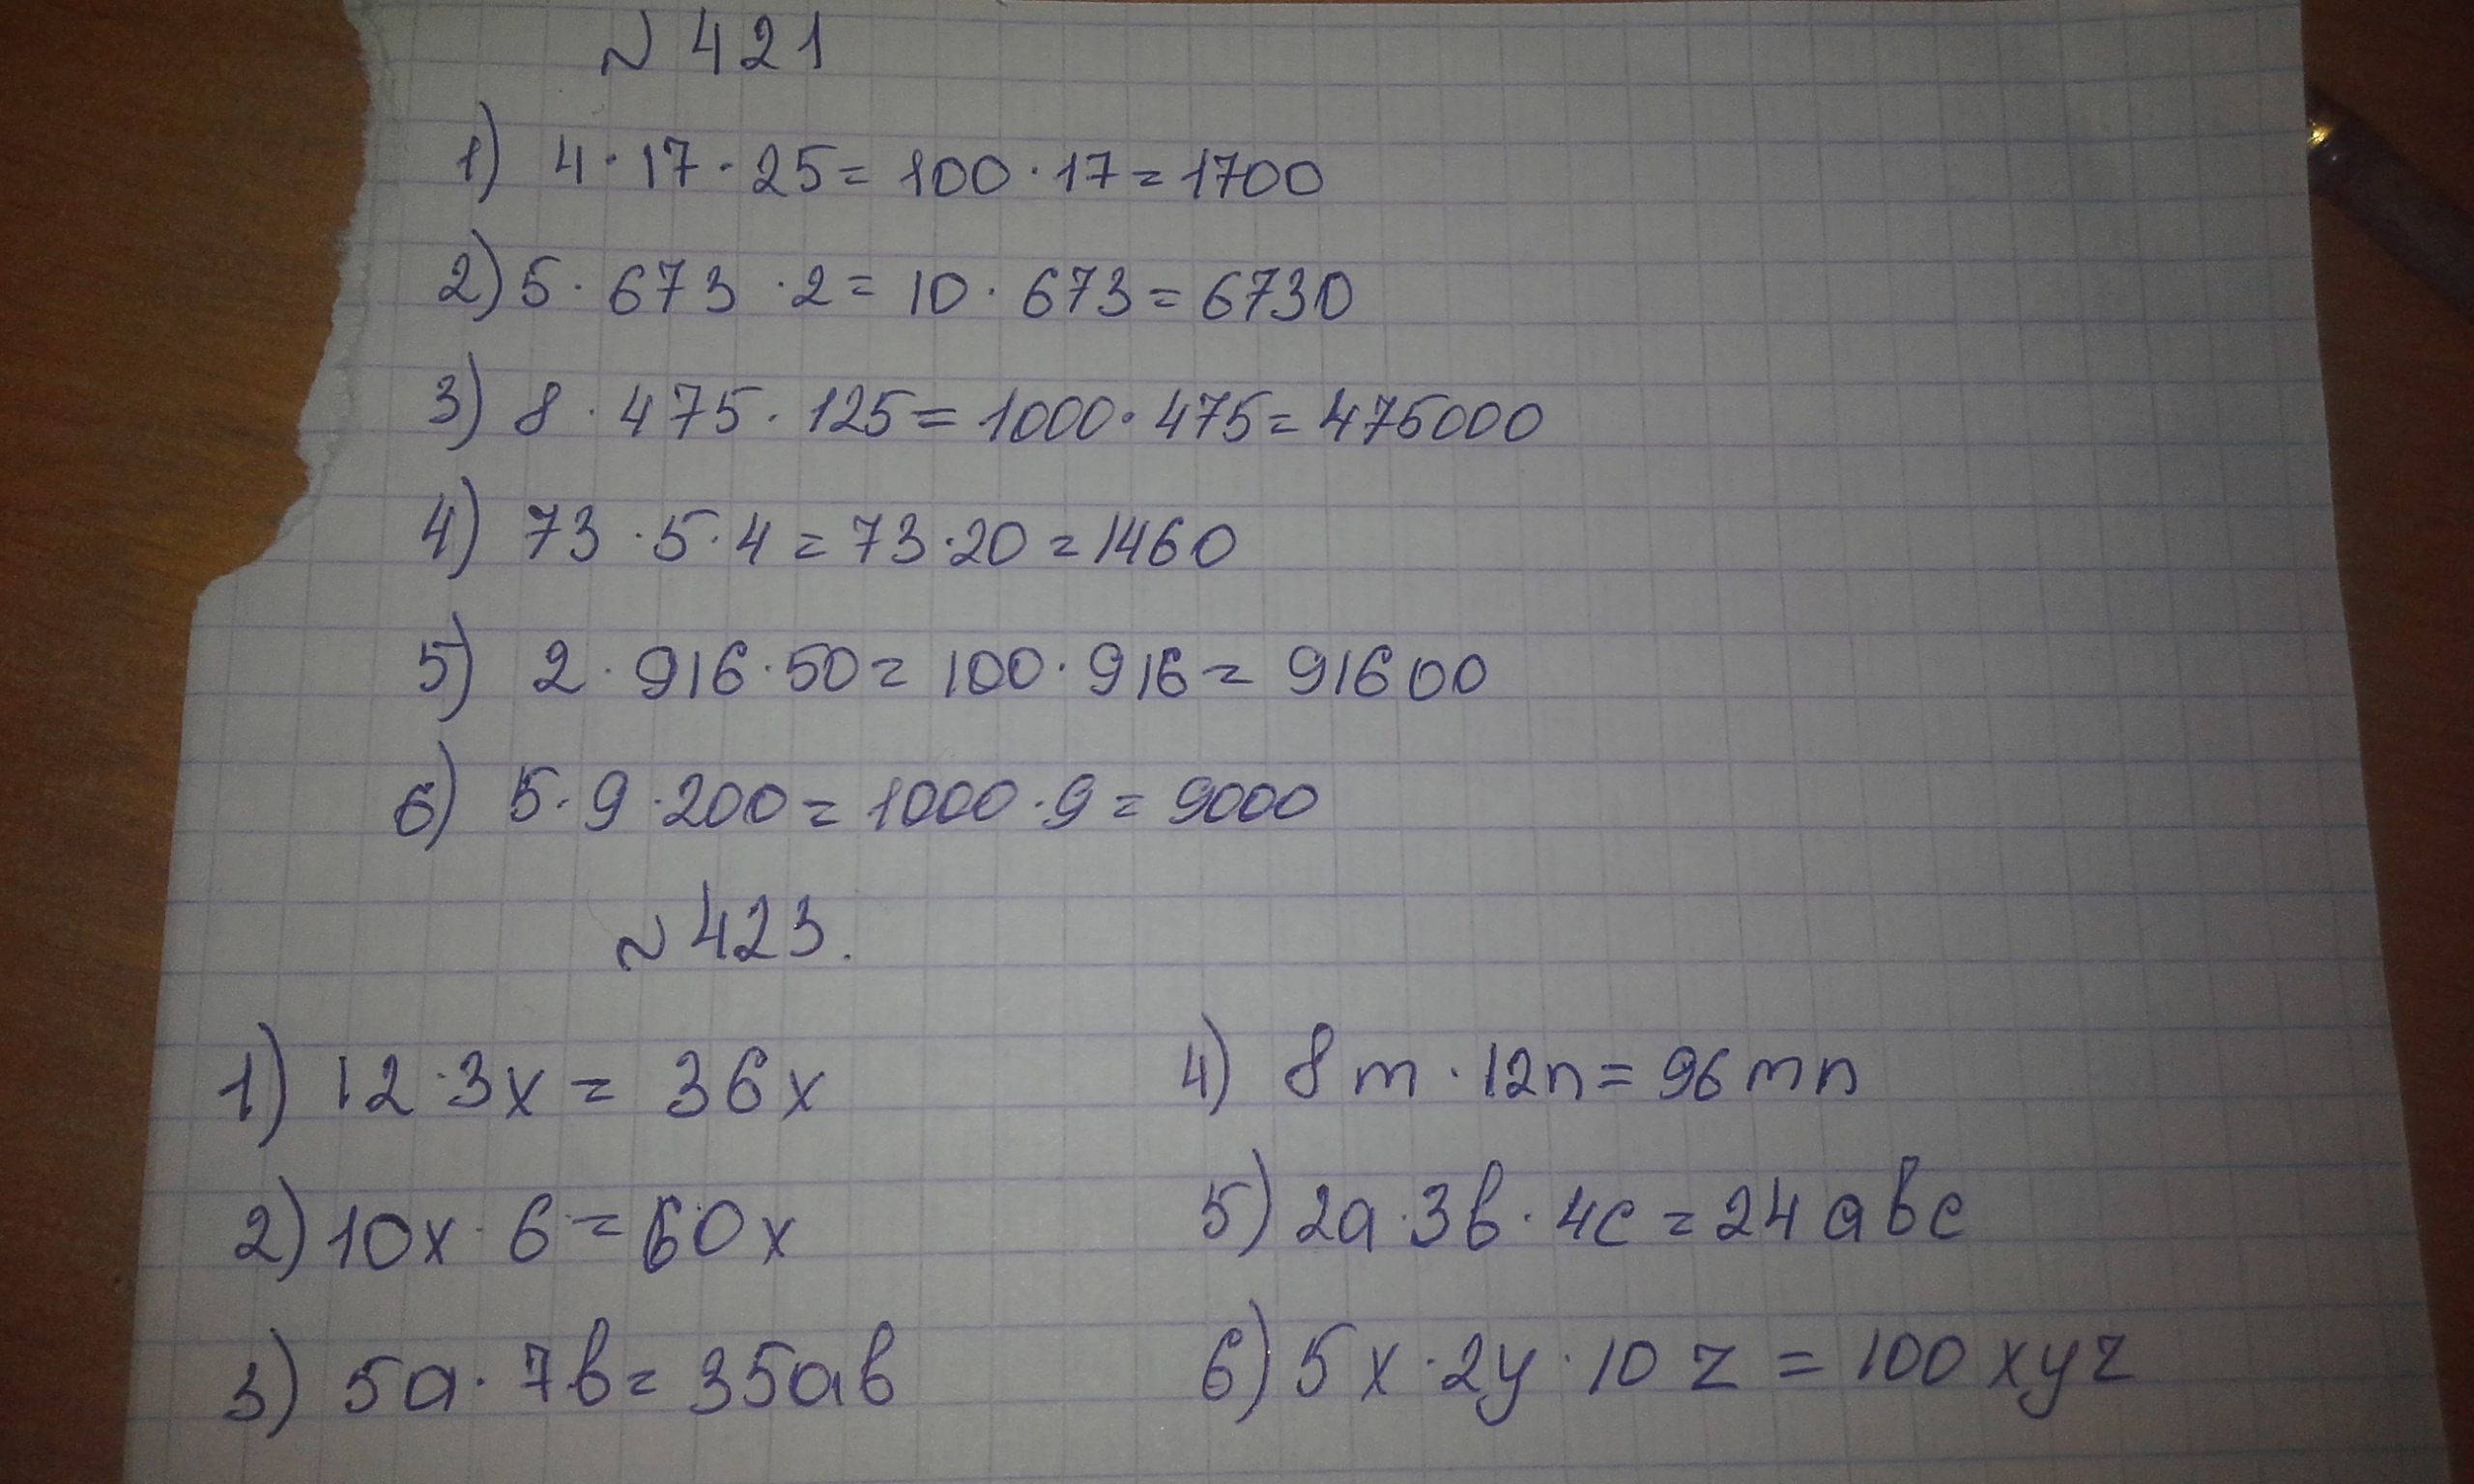 № 421
1) 4 · 17 · 25 = 100 · 17 = 1700
2) 5 · 673 · 2 = 10 · 673 = 6730
3) 8 · 475 · 125 = 1000 · 475 = 475000
4) 73 · 5 · 4 = 73 · 20 = 1460
5) 2 · 916 · 50 = 100 · 916 = 91600
6) 5 · 9 · 200 = 1000 · 9 = 9000
№ 423.
1) 12 · 3x = 36x
2) 10x · 6 = 60x
3) 5a · 7b = 35ab
4) 8m · 12n = 96mn
5) 2a · 3b · 4c = 24abc
6) 5x · 2y · 10z = 100xyz